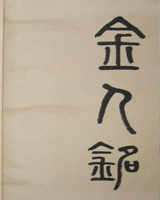 金人銘